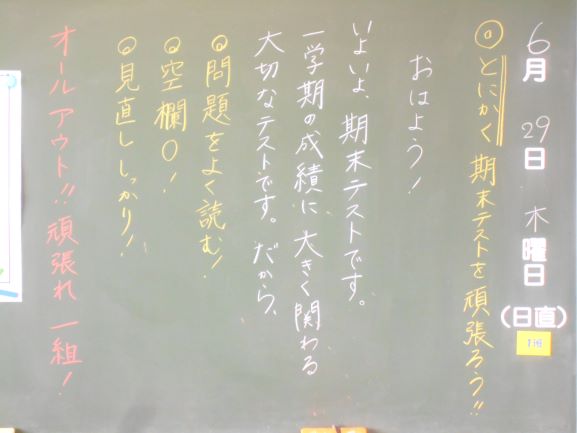 6月29日 木曜日
(日直)
1班
◎とにかく期末テストを頑張ろう!!
おはよう!
いよいよ、期末テストです。
一学期の成績に大きく関わる
大切なテストです。だから、
◎問題をよく読む!
◎空欄0!
◎見直ししっかり!
オールアウト!!頑張れ一組!